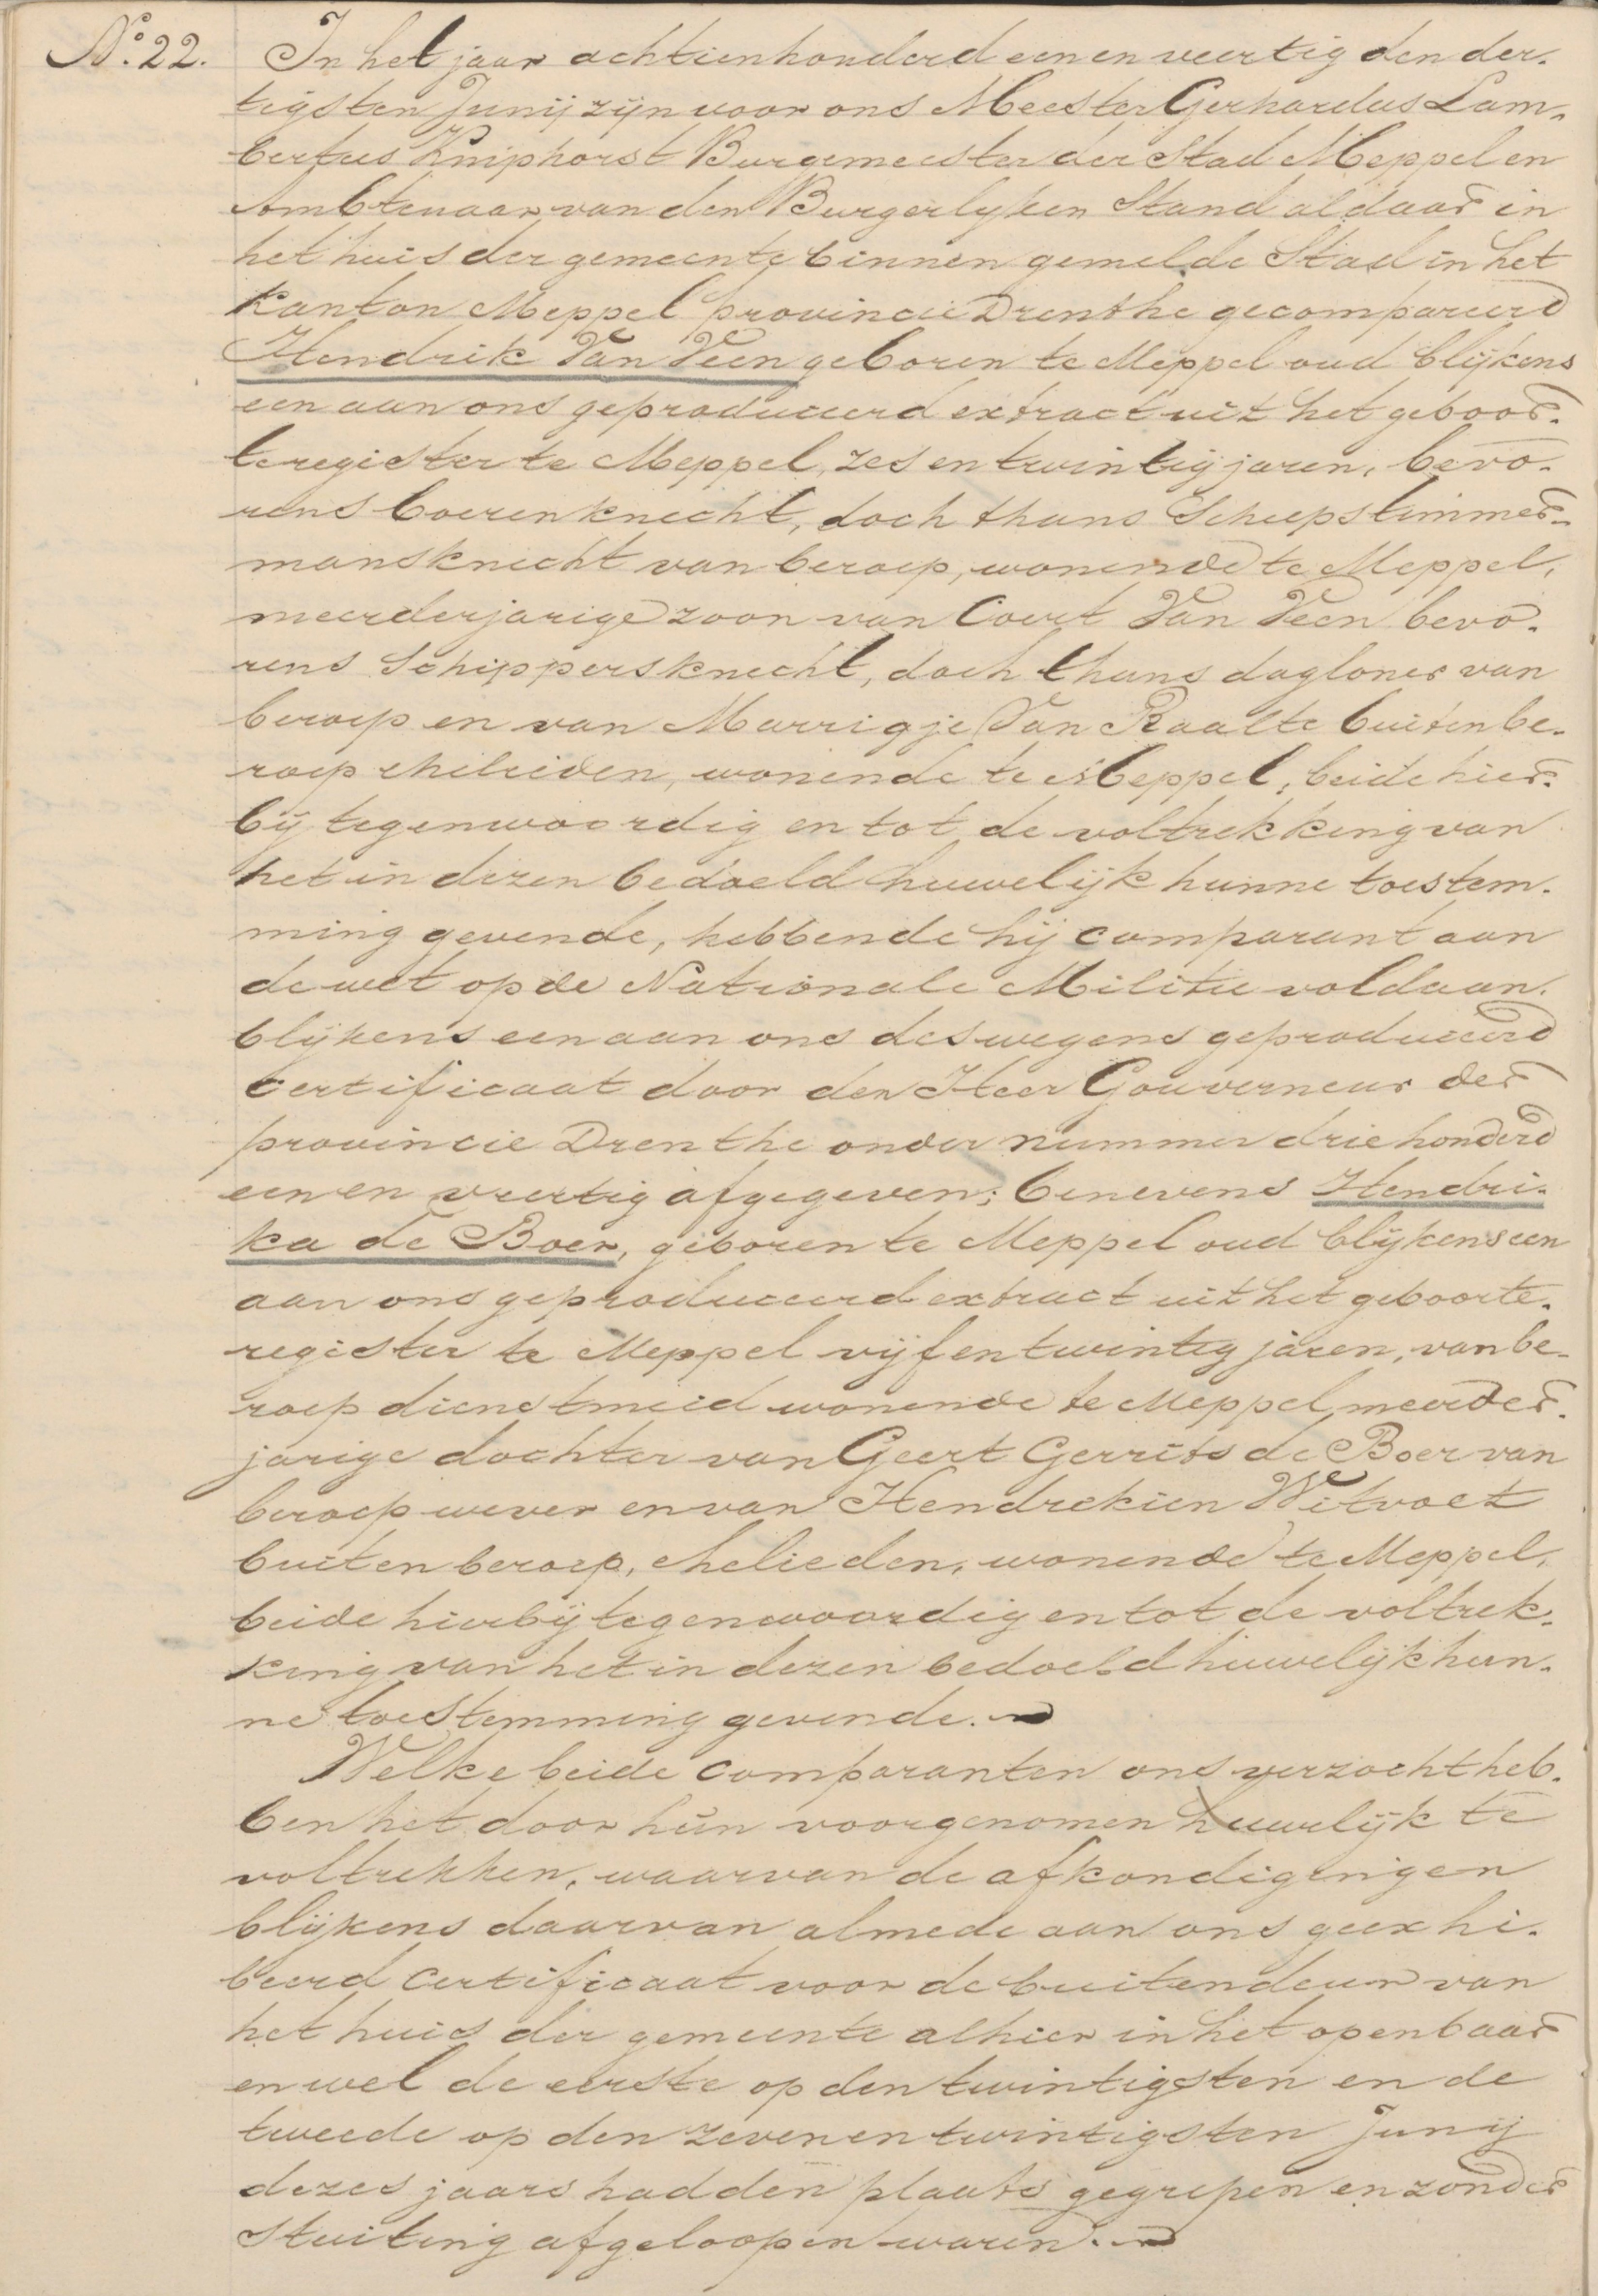 No. 22. In het jaar achtienhonderd een en veertig den der-
tigsten Junij zijn voor ons Meester Gerhardus Lam-
bertus Kniphorst Burgemeester der Stad Meppel en
Ambtenaar van den Burgerlyken Stand aldaar in
het huis der gemeente binnen gemelde Stad in het
Kanton Meppel provincie Drenthe gecompareerd
Hendrik Van Veen geboren te Meppel oud blijkens
een aan ons geproduceerd extract uit het geboor-
teregister te Meppel, zes en twintig jaren, bevo-
rens boerenknecht, doch thans Scheepstimmer-
mansknecht van beroep, wonende te Meppel,
meerderjarige zoon van Coert Van Veen bevo-
rens Schippersknecht, doch thans dagloner van
beroep en van Marrigje Van Raalte buiten be-
roep ehelieden, wonende te Meppel, beide hier-
bij tegenwoordig en tot de voltrekking van
het in dezen bedoeld huwelijk hunne toestem-
ming gevende, hebbende hij comparant aan
de wet op de Nationale Militie voldaan,
blijkens een aan ons deswegens geproduceerd
certificaat door den Heer Gouverneur der
provincie Drenthe onder nummer driehonderd
een en veertig afgegeven; benevens Hendri-
ka de Boer, geboren te Meppel oud blijkens een
aan ons geproduceerd extract uit het geboorte-
register te Meppel vijf en twintig jaren, van be-
roep dienstmeid wonende te Meppel, meerder-
jarige dochter van Geert Gerrits de Boer van
beroep wever en van Hendrekien Witvoet
buiten beroep, ehelieden, wonende te Meppel,
beide hierbij tegenwoordig en tot de voltrek-
king van het in dezen bedoeld huwelijk hun-
ne toestemming gevende.
Welke beide comparanten ons verzocht heb-
ben het door hun voorgenomen huwelijk te
voltrekken, waarvan de afkondigingen
blijkens daarvan almede aan ons geexhi-
beerd certificaat voor de buitendeur van
het huis der gemeente alhier in het openbaar
en wel de eerste op den twintigsten en de
tweede op den zeven en twintigsten Junij
dezes jaars hadden plaats gegrepen en zonder
stuiting afgeloopen waren.